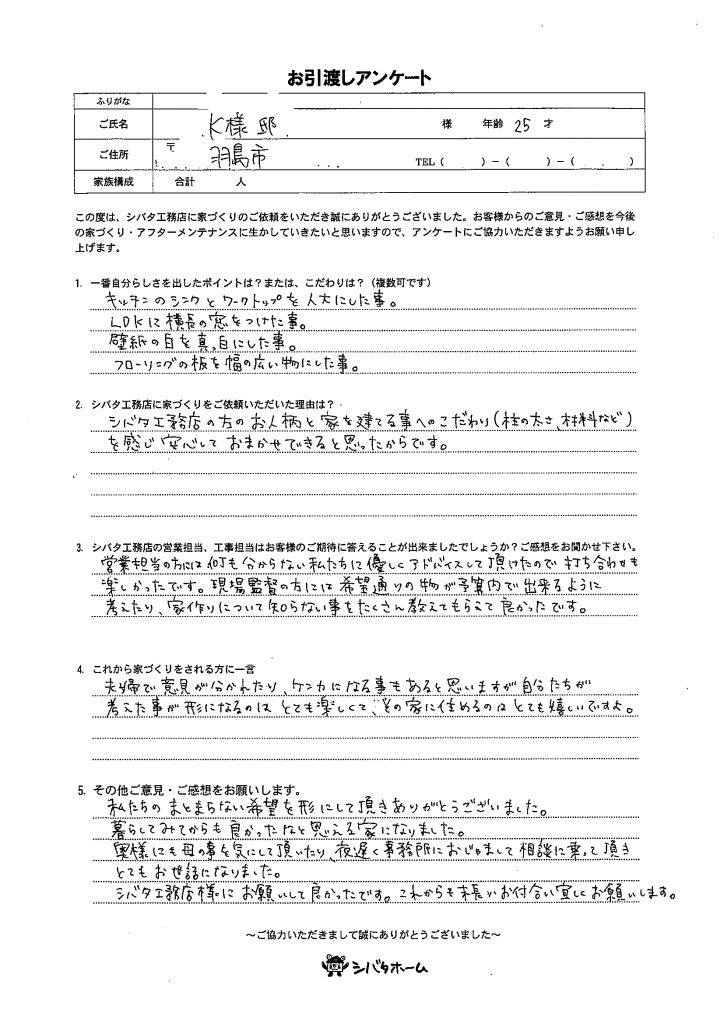 お引渡しアンケート
ふりがな
ご氏名 K様邸 様 年齢 25 才
ご住所 〒 羽島市 TEL ( ) － ( ) － ( )
家族構成 合計 人
この度は、シバタ工務店に家づくりのご依頼をいただき誠にありがとうございました。お客様からのご意見・ご感想を今後
の家づくり・アフターメンテナンスに生かしていきたいと思いますので、アンケートにご協力いただきますようお願い申し
上げます。
1. 一番自分らしさを出したポイントは？または、こだわりは？（複数可です）
キッチンのシンクとワークトップを人大にした事。
LDKに横長の窓をつけた事。
壁紙の白を真っ白にした事。
フローリングの板を幅の広い物にした事。
2. シバタ工務店に家づくりをご依頼いただいた理由は？
シバタ工務店の方のお人柄と家を建てる事へのこだわり(柱の太さ、材料など)
を感じ安心しておまかせできると思ったからです。
3. シバタ工務店の営業担当、工事担当はお客様のご期待に答えることが出来ましたでしょうか？ご感想をお聞かせ下さい。
営業担当の方には何も分からない私たちに優しくアドバイスして頂けたので打ち合わせも
楽しかったです。現場監督の方には希望通りの物が予算内で出来るように
考えたり、家作りについて知らない事をたくさん教えてもらえて良かったです。
4. これから家づくりをされる方に一言
夫婦で意見が分かれたり、ケンカになる事もあると思いますが自分たちが
考えた事が形になるのはとても楽しくて、その家に住めるのはとても嬉しいですよ。
5. その他ご意見・ご感想をお願いします。
私たちのまとまらない希望を形にして頂きありがとうございました。
暮らしてみてからも良かったなと思える家になりました。
奥様にも母の事を気にして頂いたり、夜遅く事務所におじゃまして相談に乗って頂き
とてもお世話になりました。
シバタ工務店様にお願いして良かったです。これからも末長いお付合い宜しくお願いします。
～ご協力いただきまして誠にありがとうございました～
シバタホーム